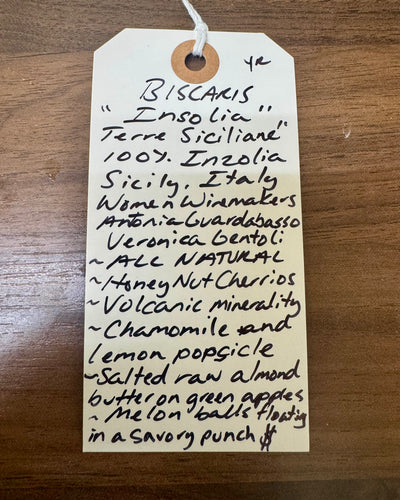 YR
BISCARIS
"Insolia"
Terre Siciliane"
100% Inzolia
Sicily, Italy
Women Winemakers
Antonia Guardabasso
Veronica Gentoli
~ ALL NATURAL
~ Honey Nut Cherrios
~ Volcanic minerality
~ Chamomile and
lemon popsicle
~ Salted raw almond
butter on green apples
~ Melon balls floating
in a savory punch $